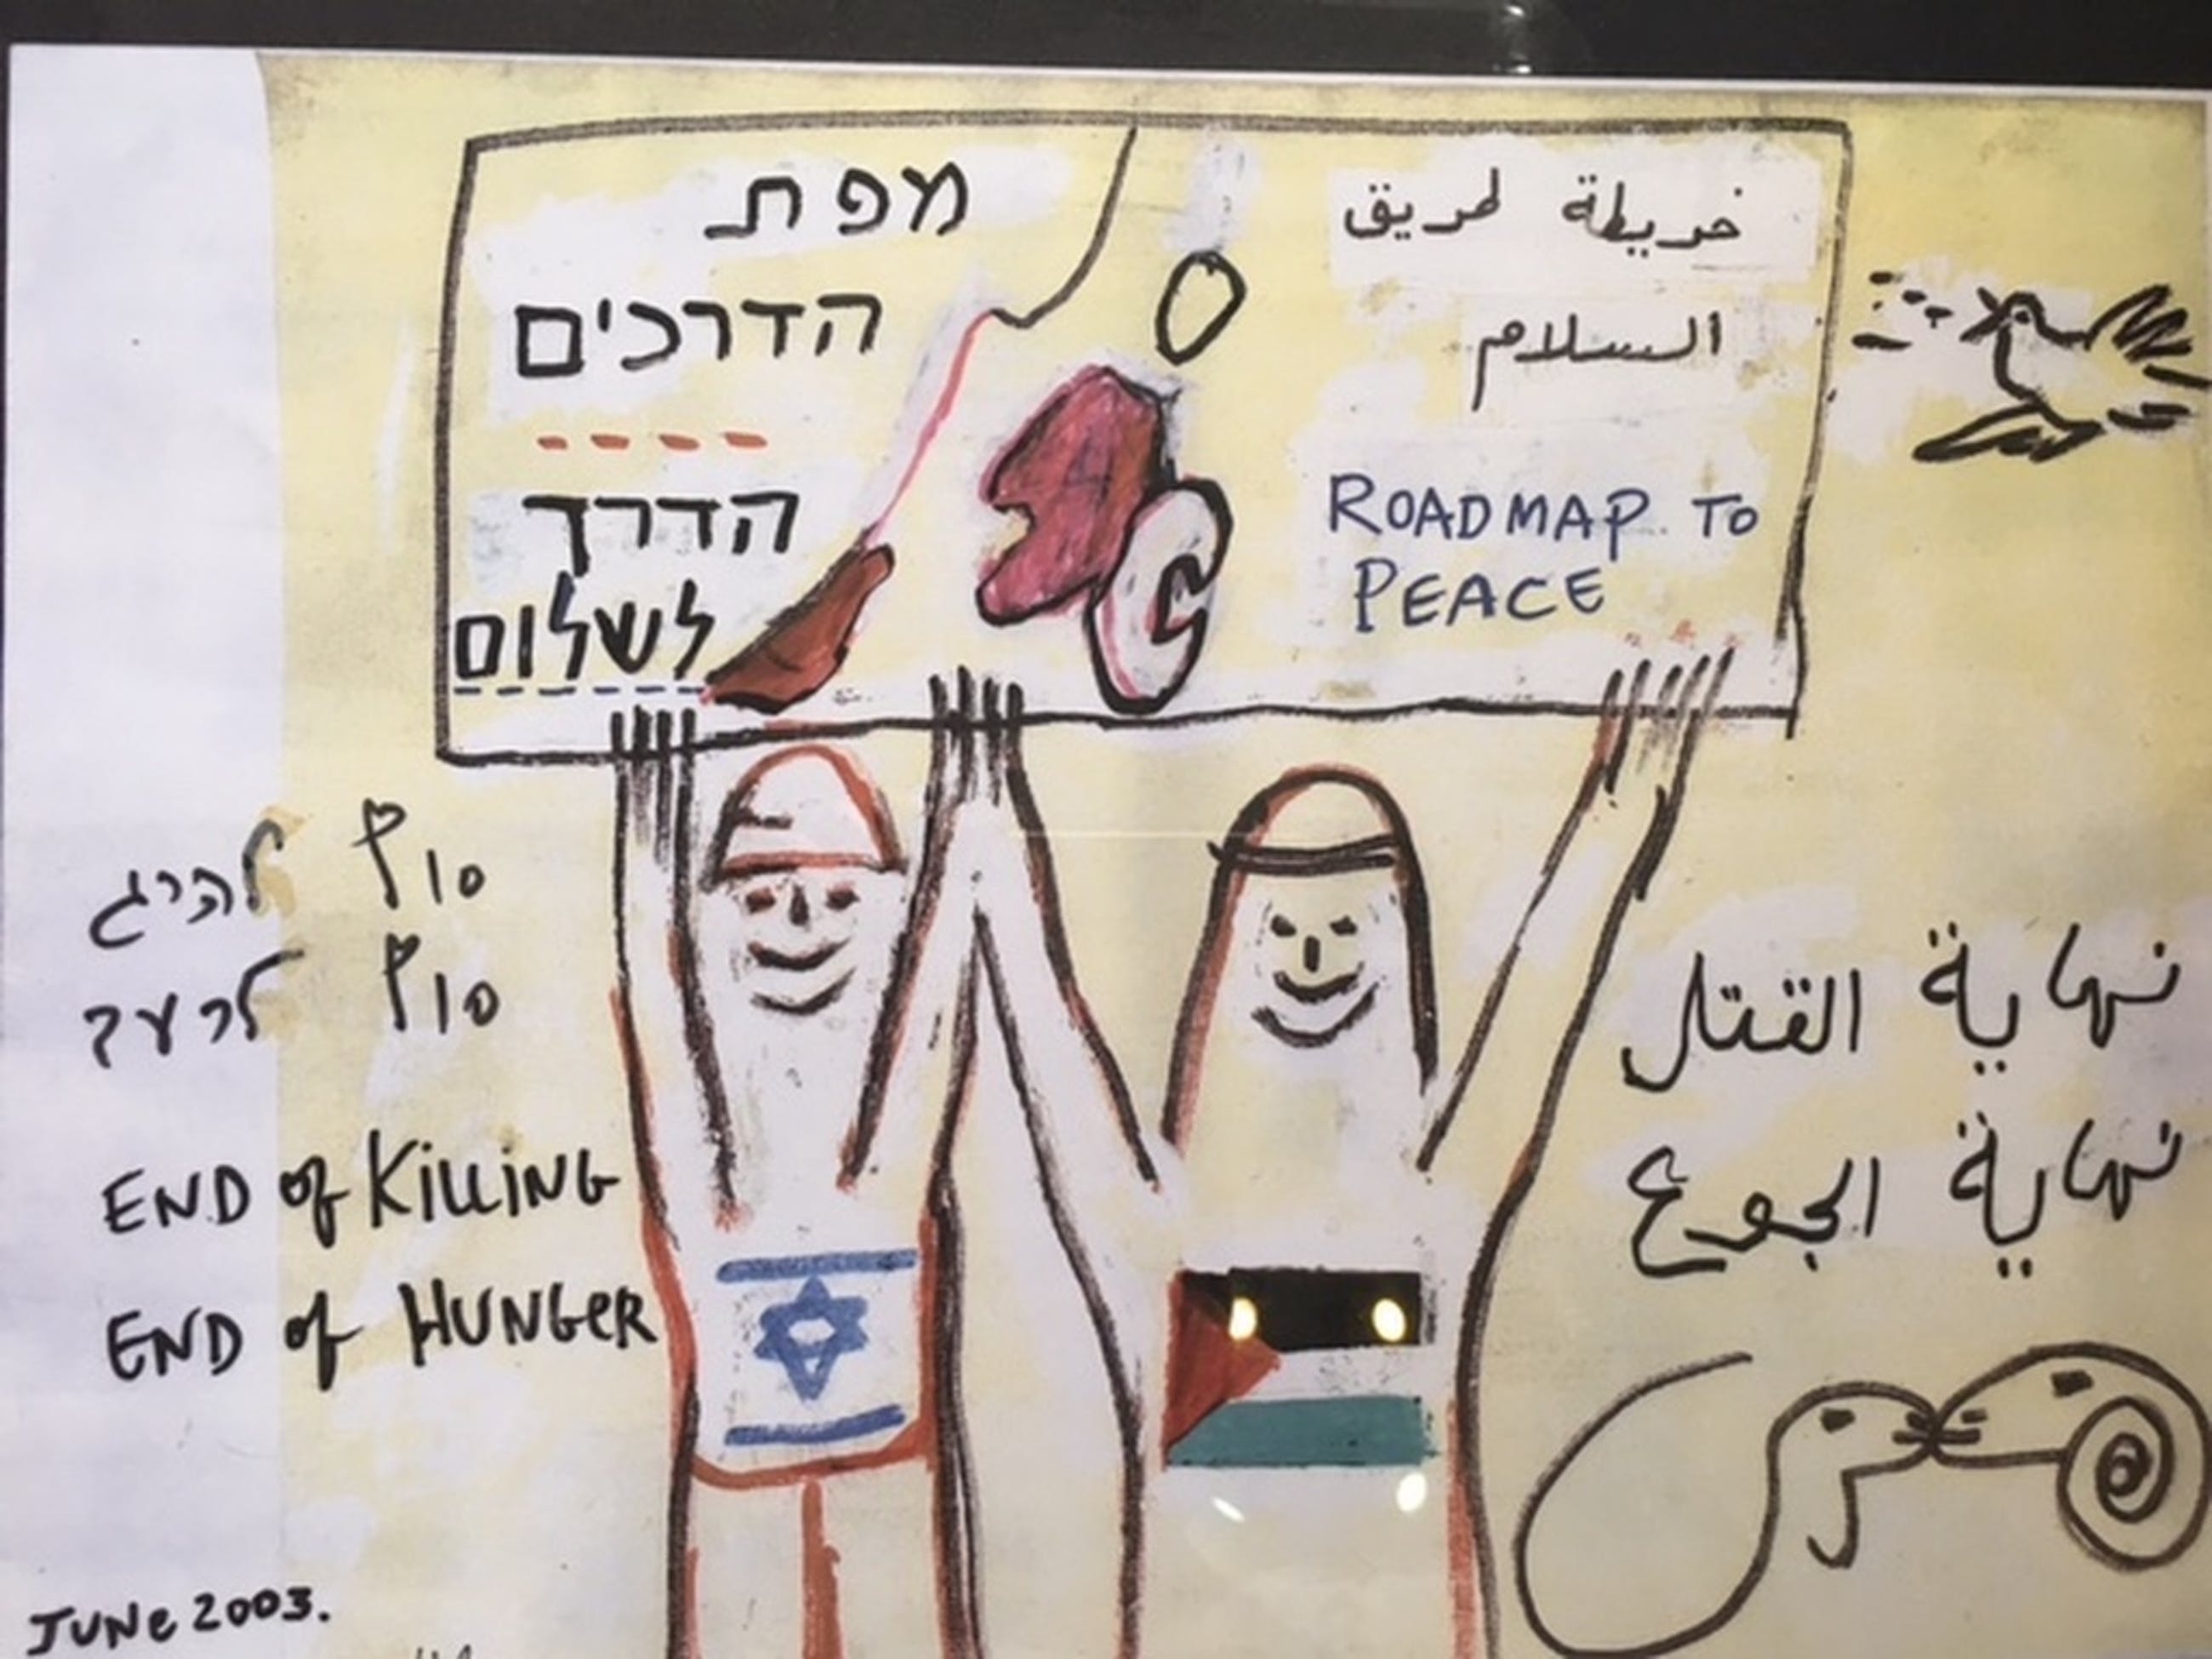 מפת
הדרכים
הדרך
לשלום
خريطة طريق
السلام
ROADMAP TO
PEACE
סוף להרג
סוף לרעב
END of KILLING
END of HUNGER
نهاية القتل
نهاية الجوع
JUNE 2003.